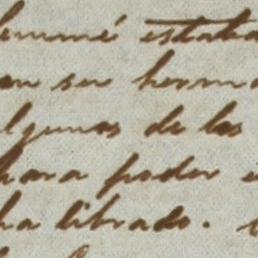 estaba
en su herma
algunas de las
para poder
ha librado.